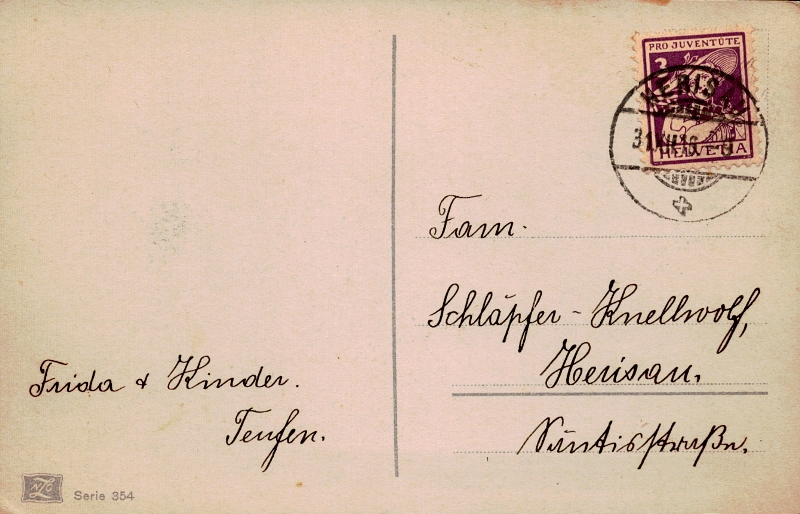 PRO JUVENTUTE
3
HERISAU
31.XII.16.
HELVETIA
Fam.
Schläpfer-Knellwolf,
Herisau.
Säntisstraße.
Frida & Kinder.
Teufen.
Serie 354